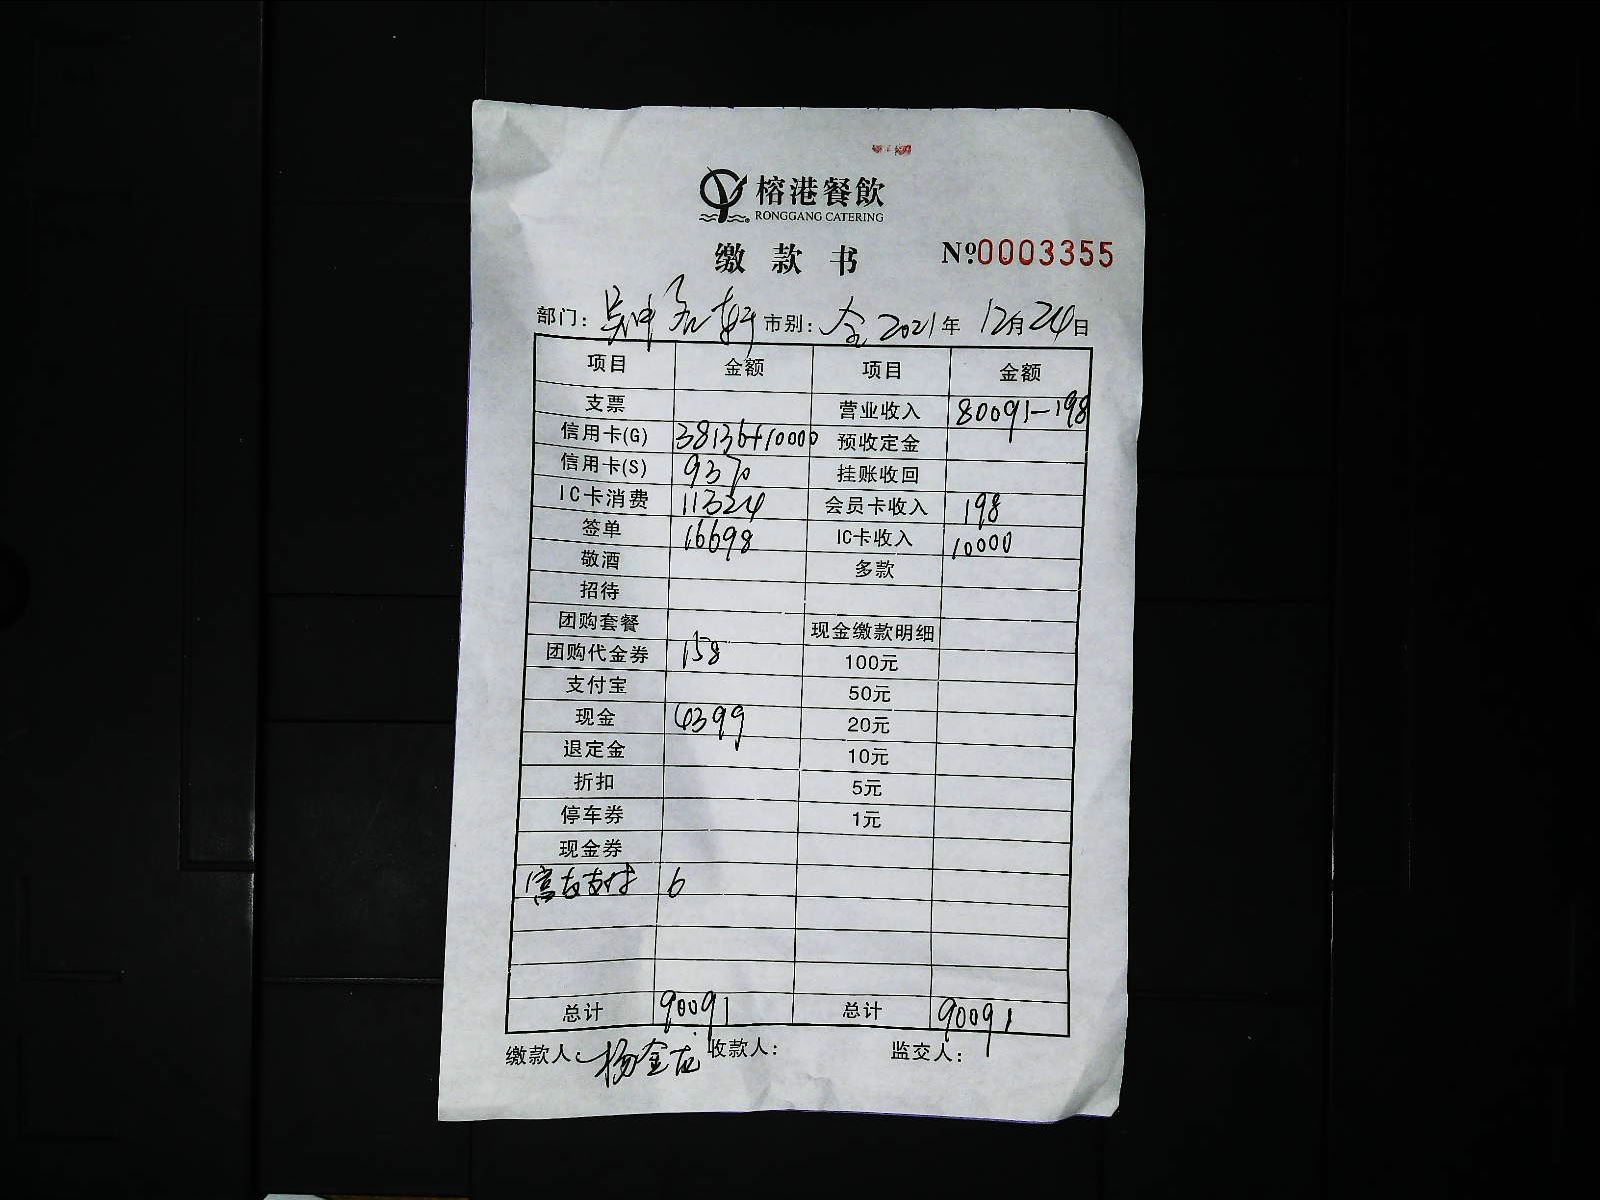 榕港餐飲
RONGGANG CATERING
缴款书 Nº0003355
部门: 吴中名轩 市别: 全 2021年 12月24日
项目 金额 项目 金额
支票 营业收入 80091-198
信用卡(G) 38136+10000 预收定金
信用卡(S) 9370 挂账收回
IC卡消费 11324 会员卡收入 198
签单 16698 IC卡收入 10000
敬酒 多款
招待
团购套餐 现金缴款明细
团购代金券 158 100元
支付宝 50元
现金 4399 20元
退定金 10元
折扣 5元
停车券 1元
现金券
富友支付 6
总计 90091 总计 90091
缴款人: 杨金龙 收款人: 监交人: